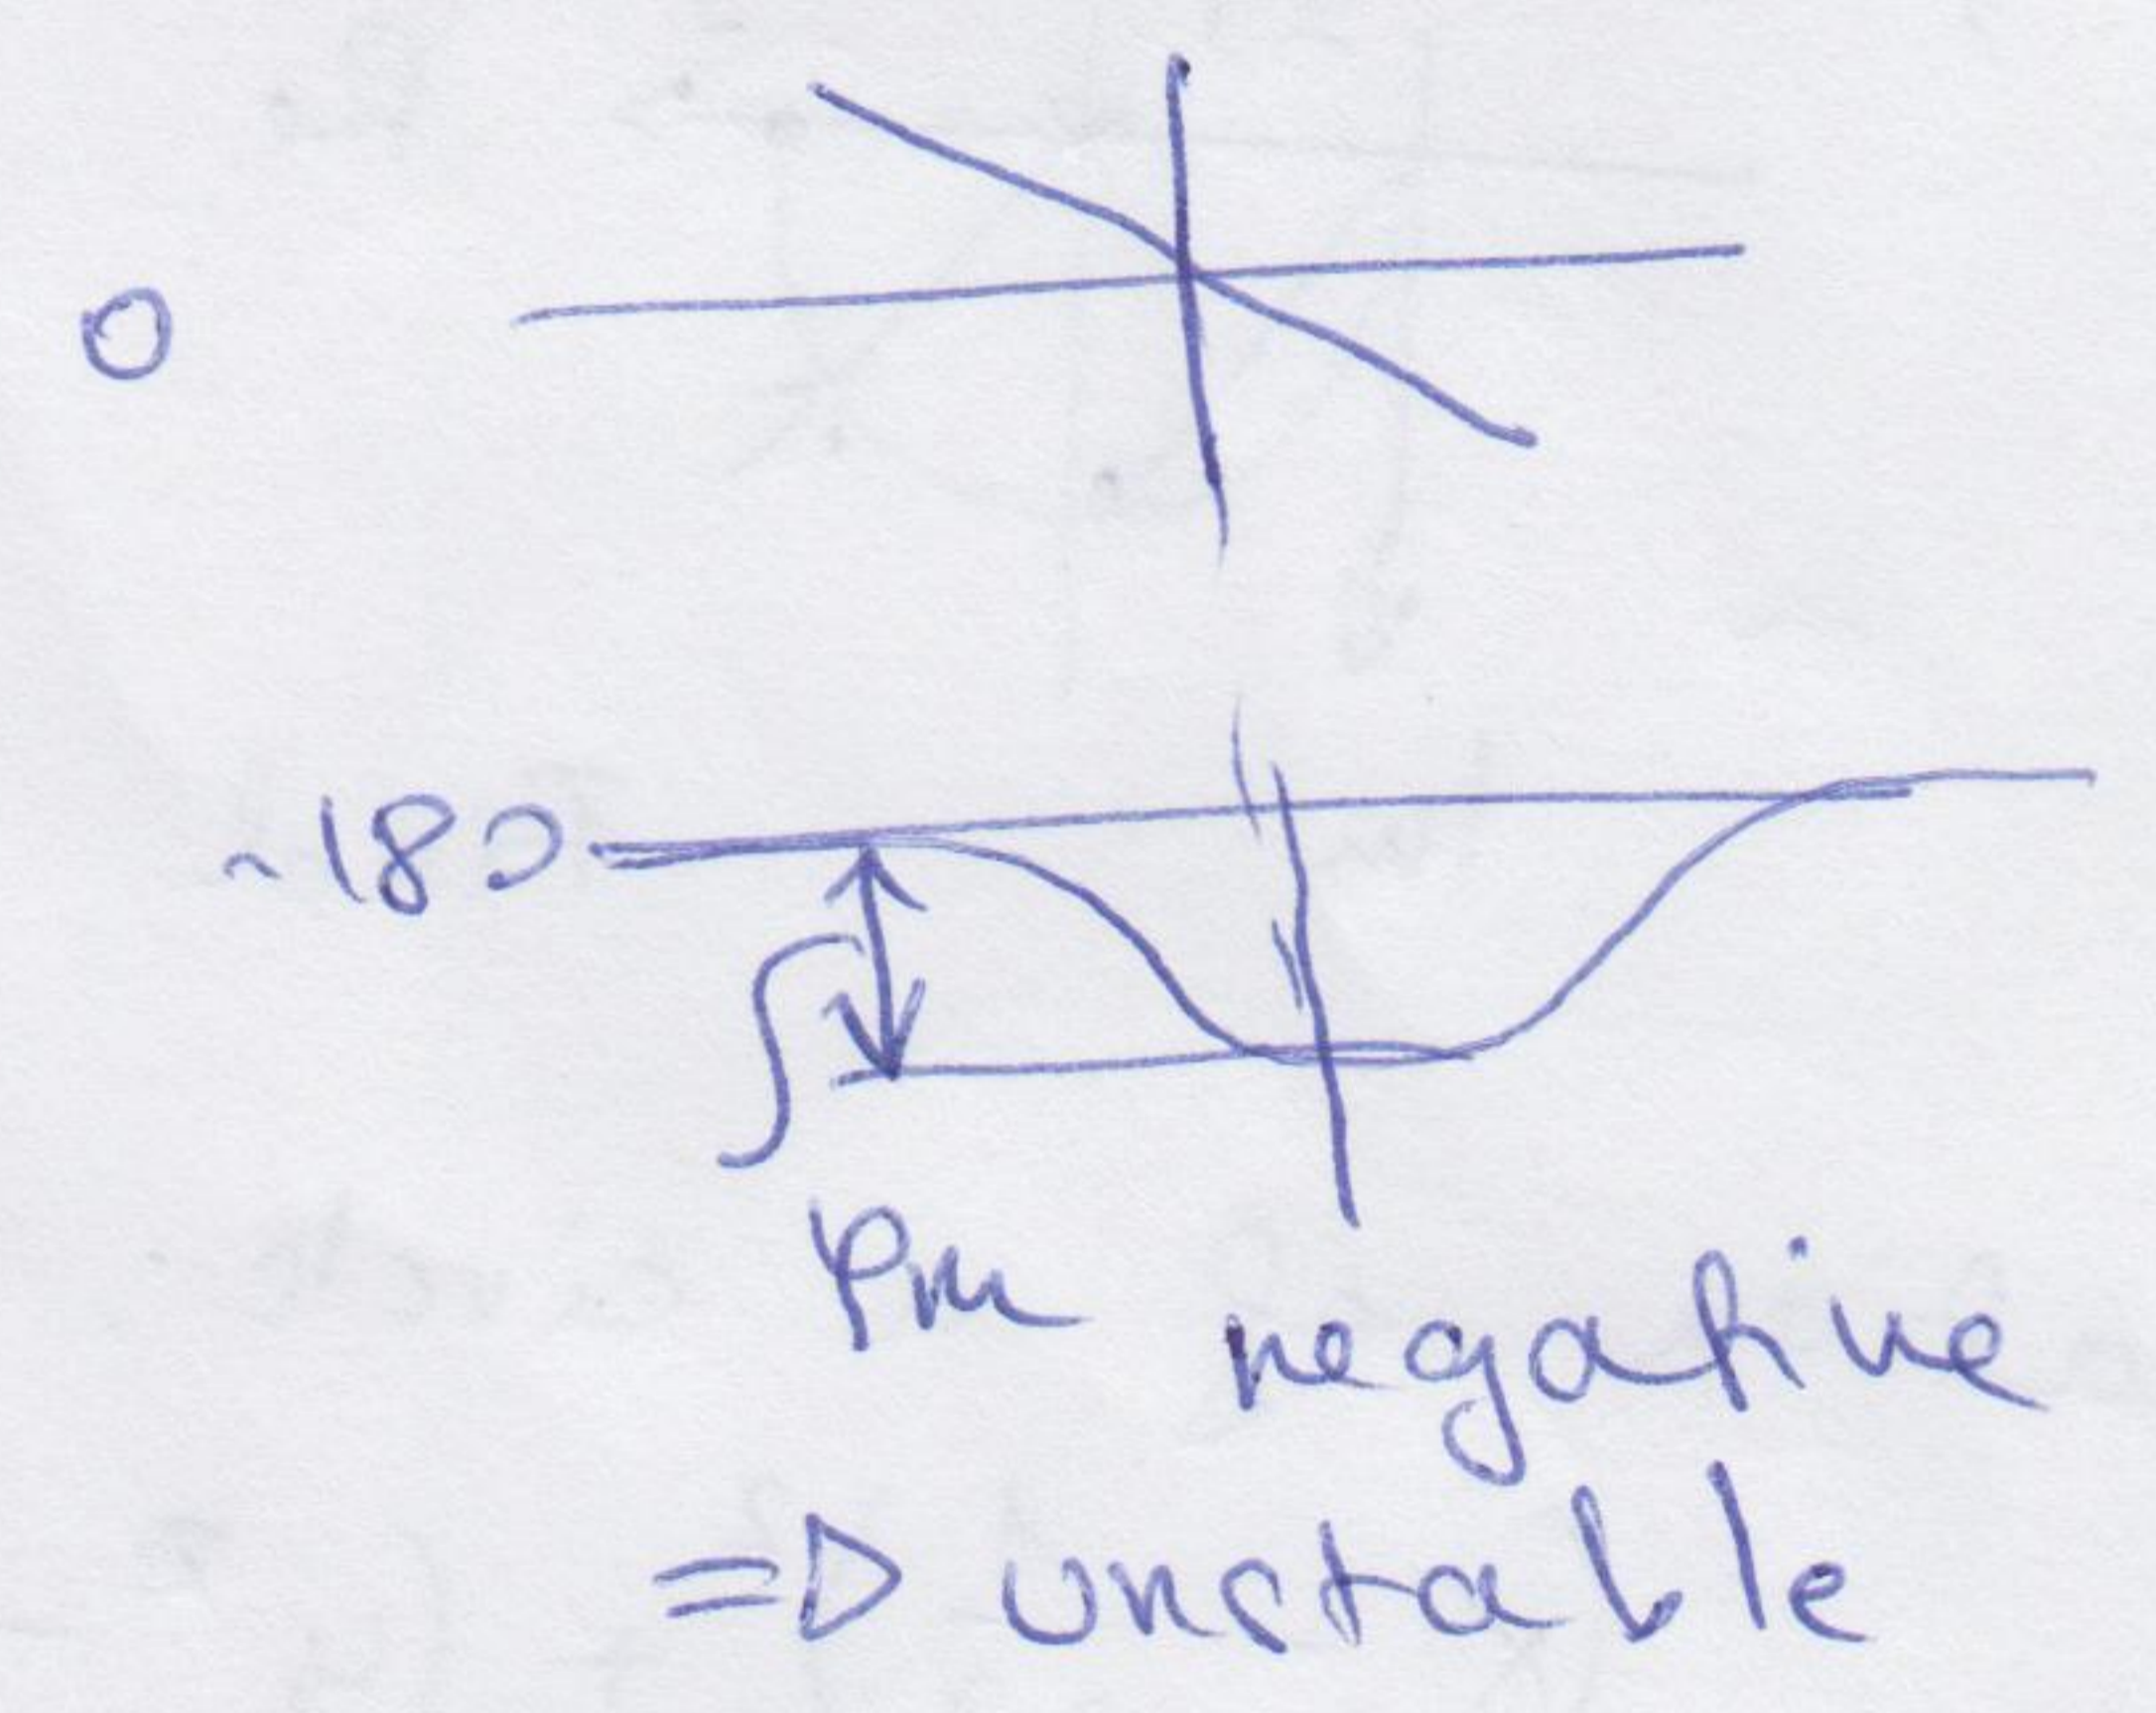 0
-180
φm negative
=> unstable